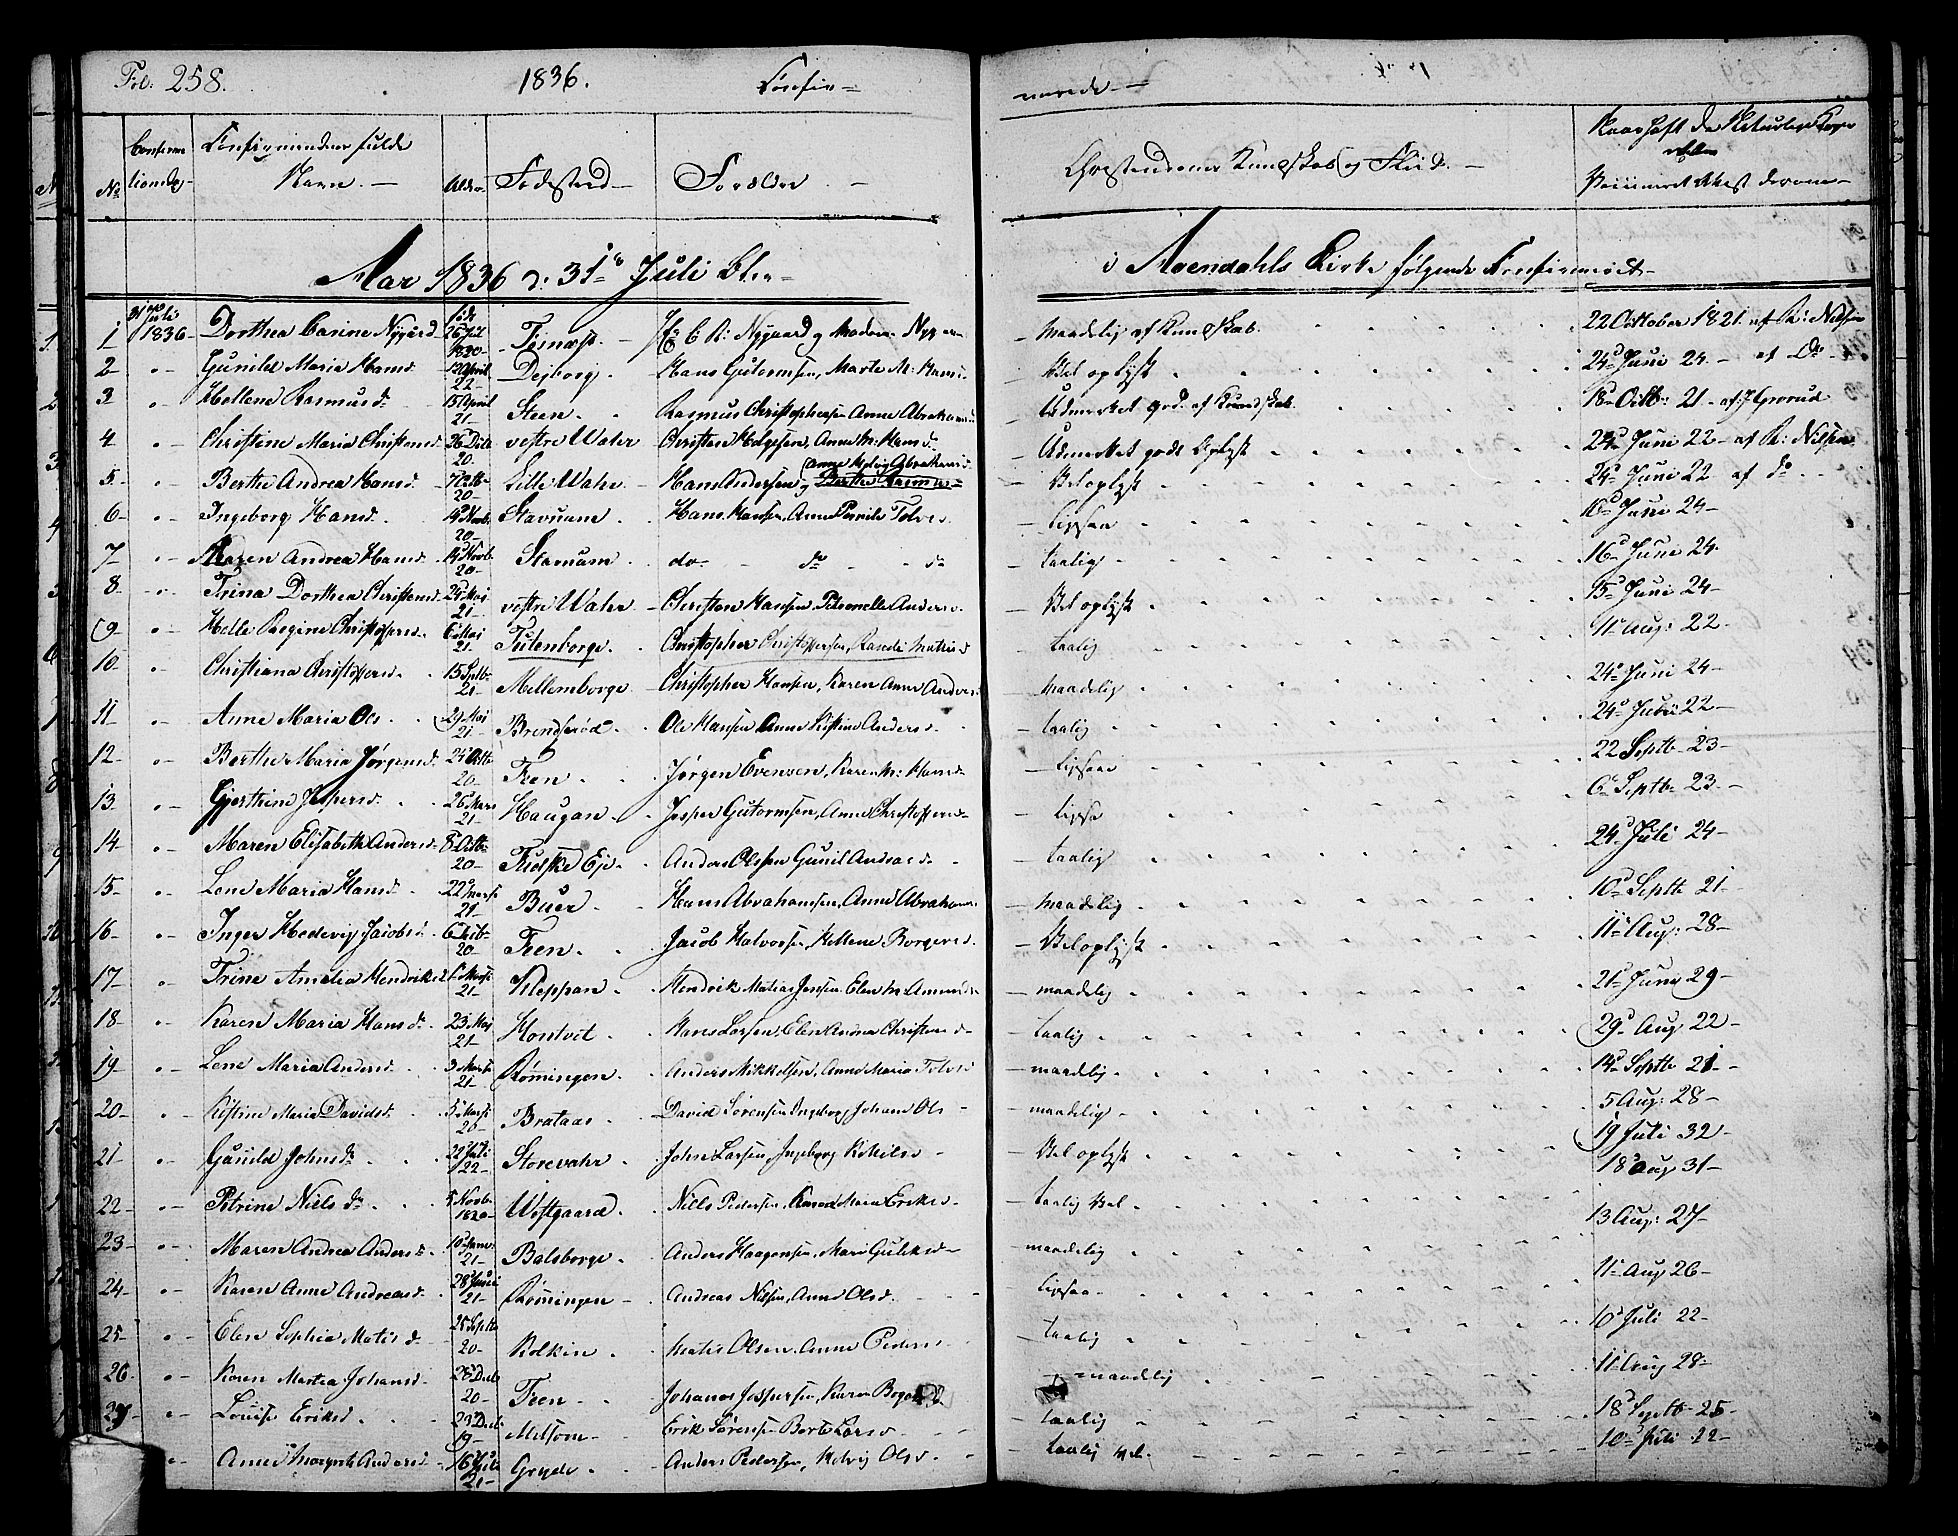 Fol: 258. 1836. Confir=
merede
No Confirmationsdg Confirmandens fulde Navn. Alder Fødested Forældre Christendoms Kundskab og Flid.
Aar 1836 d. 31te Juli blev i Arendahls Kirke følgende Confirmeret
1 31 Juli 1836 Dorthea Carine Nygård født 1820 Nygaard og Madam maadelig af Kundskab. 22 October 1821 af R: Nilsen
2 Gunild Maria Hansd 12 April 22 Dejborg Hans Gutormsen, Marte M. Hansd Vel oplyst 24d Juni 24 af do
3 Hellene Rasmusd 15 April 21 Steen Rasmus Christophersen Anne Abrahamsd Udmerket god af Kundskab. 18 Octb: 21 af Grorud
4 Christine Maria Christensd 20 vestre Wahr Christen Helgesen, Anne M: Hansd Udmerket gode Oplyst 24d Juni 22 af R: Nilsen
5 Berthe Andrea Hansd 20 Lille Wahr Hans Andersen og Anne Helvig Abrahamsd Vel oplyst 24 Juni 22 af do
6 Ingeborg Hansd 14 Novb. 20 Stavnum Hans Hansen, Anne Pernile Tolvsd ligesaa 16d Juni 24
7 Maren Andrea Hansd 14 Novb. 20 Stavnum do do do taalig 16d Juni 24
8 Trina Dorthea Christensd 25 Maj 21 vestre Wahr Christen Hansen, Petronelle Andersd Vel oplyst 15d Juni 24
9 Helle Regine Christophersd 6 Maj 21 Tutenborge Christopher Christophersen, Randi Mathisd taalig 11te Aug: 22
10 Christiana Christophersd 15 Septb 21 Mellemborge Christopher Hansen, Karen Anne Andersd maadelig 24d Juni 24
11 Anne Maria Olsd 29 Maj 21 Brendsrød Ole Hansen Anne Kistine Andersd taalig 24d 22
12 Berthe Maria Jørgensd 24 Octb 20 Feen Jørgen Evensen, Karen M: Hansd ligesaa 22 Septb 23
13 Gjerthine Jespersd 26 Mars 21 Haugan Jesper Gutormsen, Anne Christoffersd ligesaa 6 Septb 23
14 Maren Elisabeth Andersd 8 Octb 20 Fudske Eje Anders Olsen Gunil Andreasd taalig 24d Juli 24
15 Lene Maria Hansd 22 Marts 21 Buer Hans Abrahamsen, Anne Abrahamsd maadelig 10d Septb 21
16 Inger Hedevig Jacobsd 20 Feen Jacob Halvorsen, Hellene Borgersd Vel oplyst 11te Aug: 28
17 Trine Amelia Hendriksd Marts 21 Kleppan Hendrik Matias Jensen, Elen M: Amundsd maadelig 21d Juni 29
18 Karen Maria Hansd 23 Maj 21 Hontvet Hans Larsen, Elen Andrea Christensd taalig 29d Aug 22
19 Lene Maria Andersd 3 Marts 21 Rømingen Anders Mikkelsen, Anne Maria Tolvsd maadelig 14d Septb 21
20 Kistine Maria Davidsd 5 Marts 20 Brataas David Sørensen Ingeborg Johane Ols maadelig 5 Aug: 28
21 Gunild Johnsd 22 Juli 22 Storevahr John Larsen, Ingeborg Vel oplyst 19 Juli 32
18d Aug 31
22 Petrine Nielsd 5 Novb 1820 Westgaard Niels Pedersen, Karen Maria Eriksd taalig vel 13 Aug: 27
23 Maren Andrea Andersd 10 Janu 21 Balsborge Anders Haagensen, Mari Guliksd maadelig 11te Aug 26
24 Karen Anne Andreasd 28 Juni 21 Rømingen Andreas Nilsen, Anne Olsd ligesaa 10d Juli 22
25 Elen Sophia Matisd 25 Septb 20 Kolkin Matis Olsen, Anne Pedersd taalig
26 Karen Martea Johansd 20 Feen Johanes Jespersen, Karen maadelig 11te Aug 28
27 Lovise Eriksd 19 Melsom Erik Sørensen Berte Larsd taalig 18d Septb 25
Anne Margrete Andersd 16 21 Gryde Anders Pedersen, Helvig Olsd taalig vel. 10d Juli 22